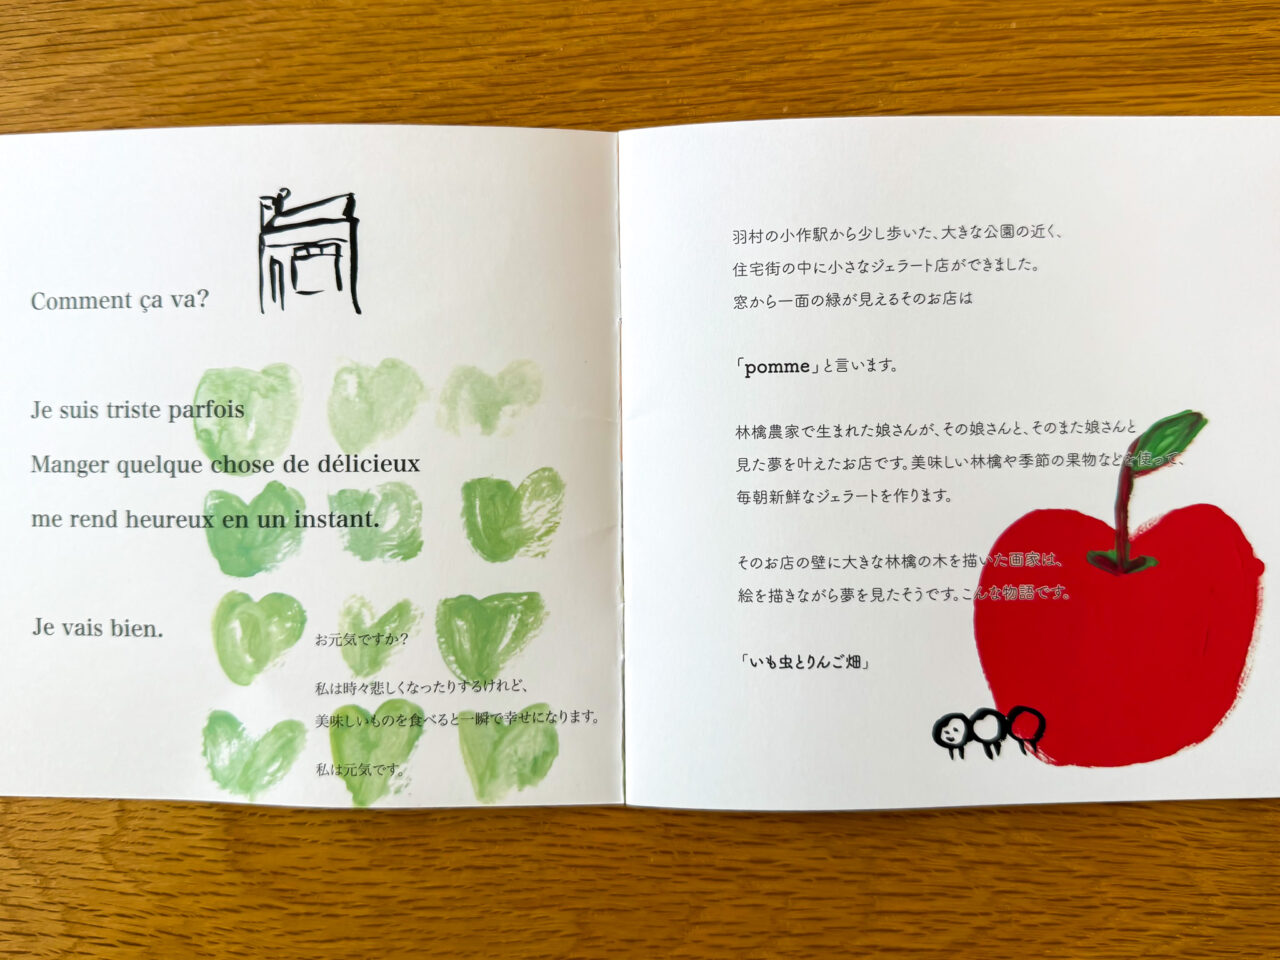 Comment ça va?
Je suis triste parfois
Manger quelque chose de délicieux
me rend heureux en un instant.
Je vais bien.
お元気ですか?
私は時々悲しくなったりするけれど、
美味しいものを食べると一瞬で幸せになります。
私は元気です。
羽村の小作駅から少し歩いた、大きな公園の近く、
住宅街の中に小さなジェラート店ができました。
窓から一面の緑が見えるそのお店は
「pomme」と言います。
林檎農家で生まれた娘さんが、その娘さんと、そのまた娘さんと
見た夢を叶えたお店です。美味しい林檎や季節の果物などを使って、
毎朝新鮮なジェラートを作ります。
そのお店の壁に大きな林檎の木を描いた画家は、
絵を描きながら夢を見たそうです。こんな物語です。
「いも虫とりんご畑」